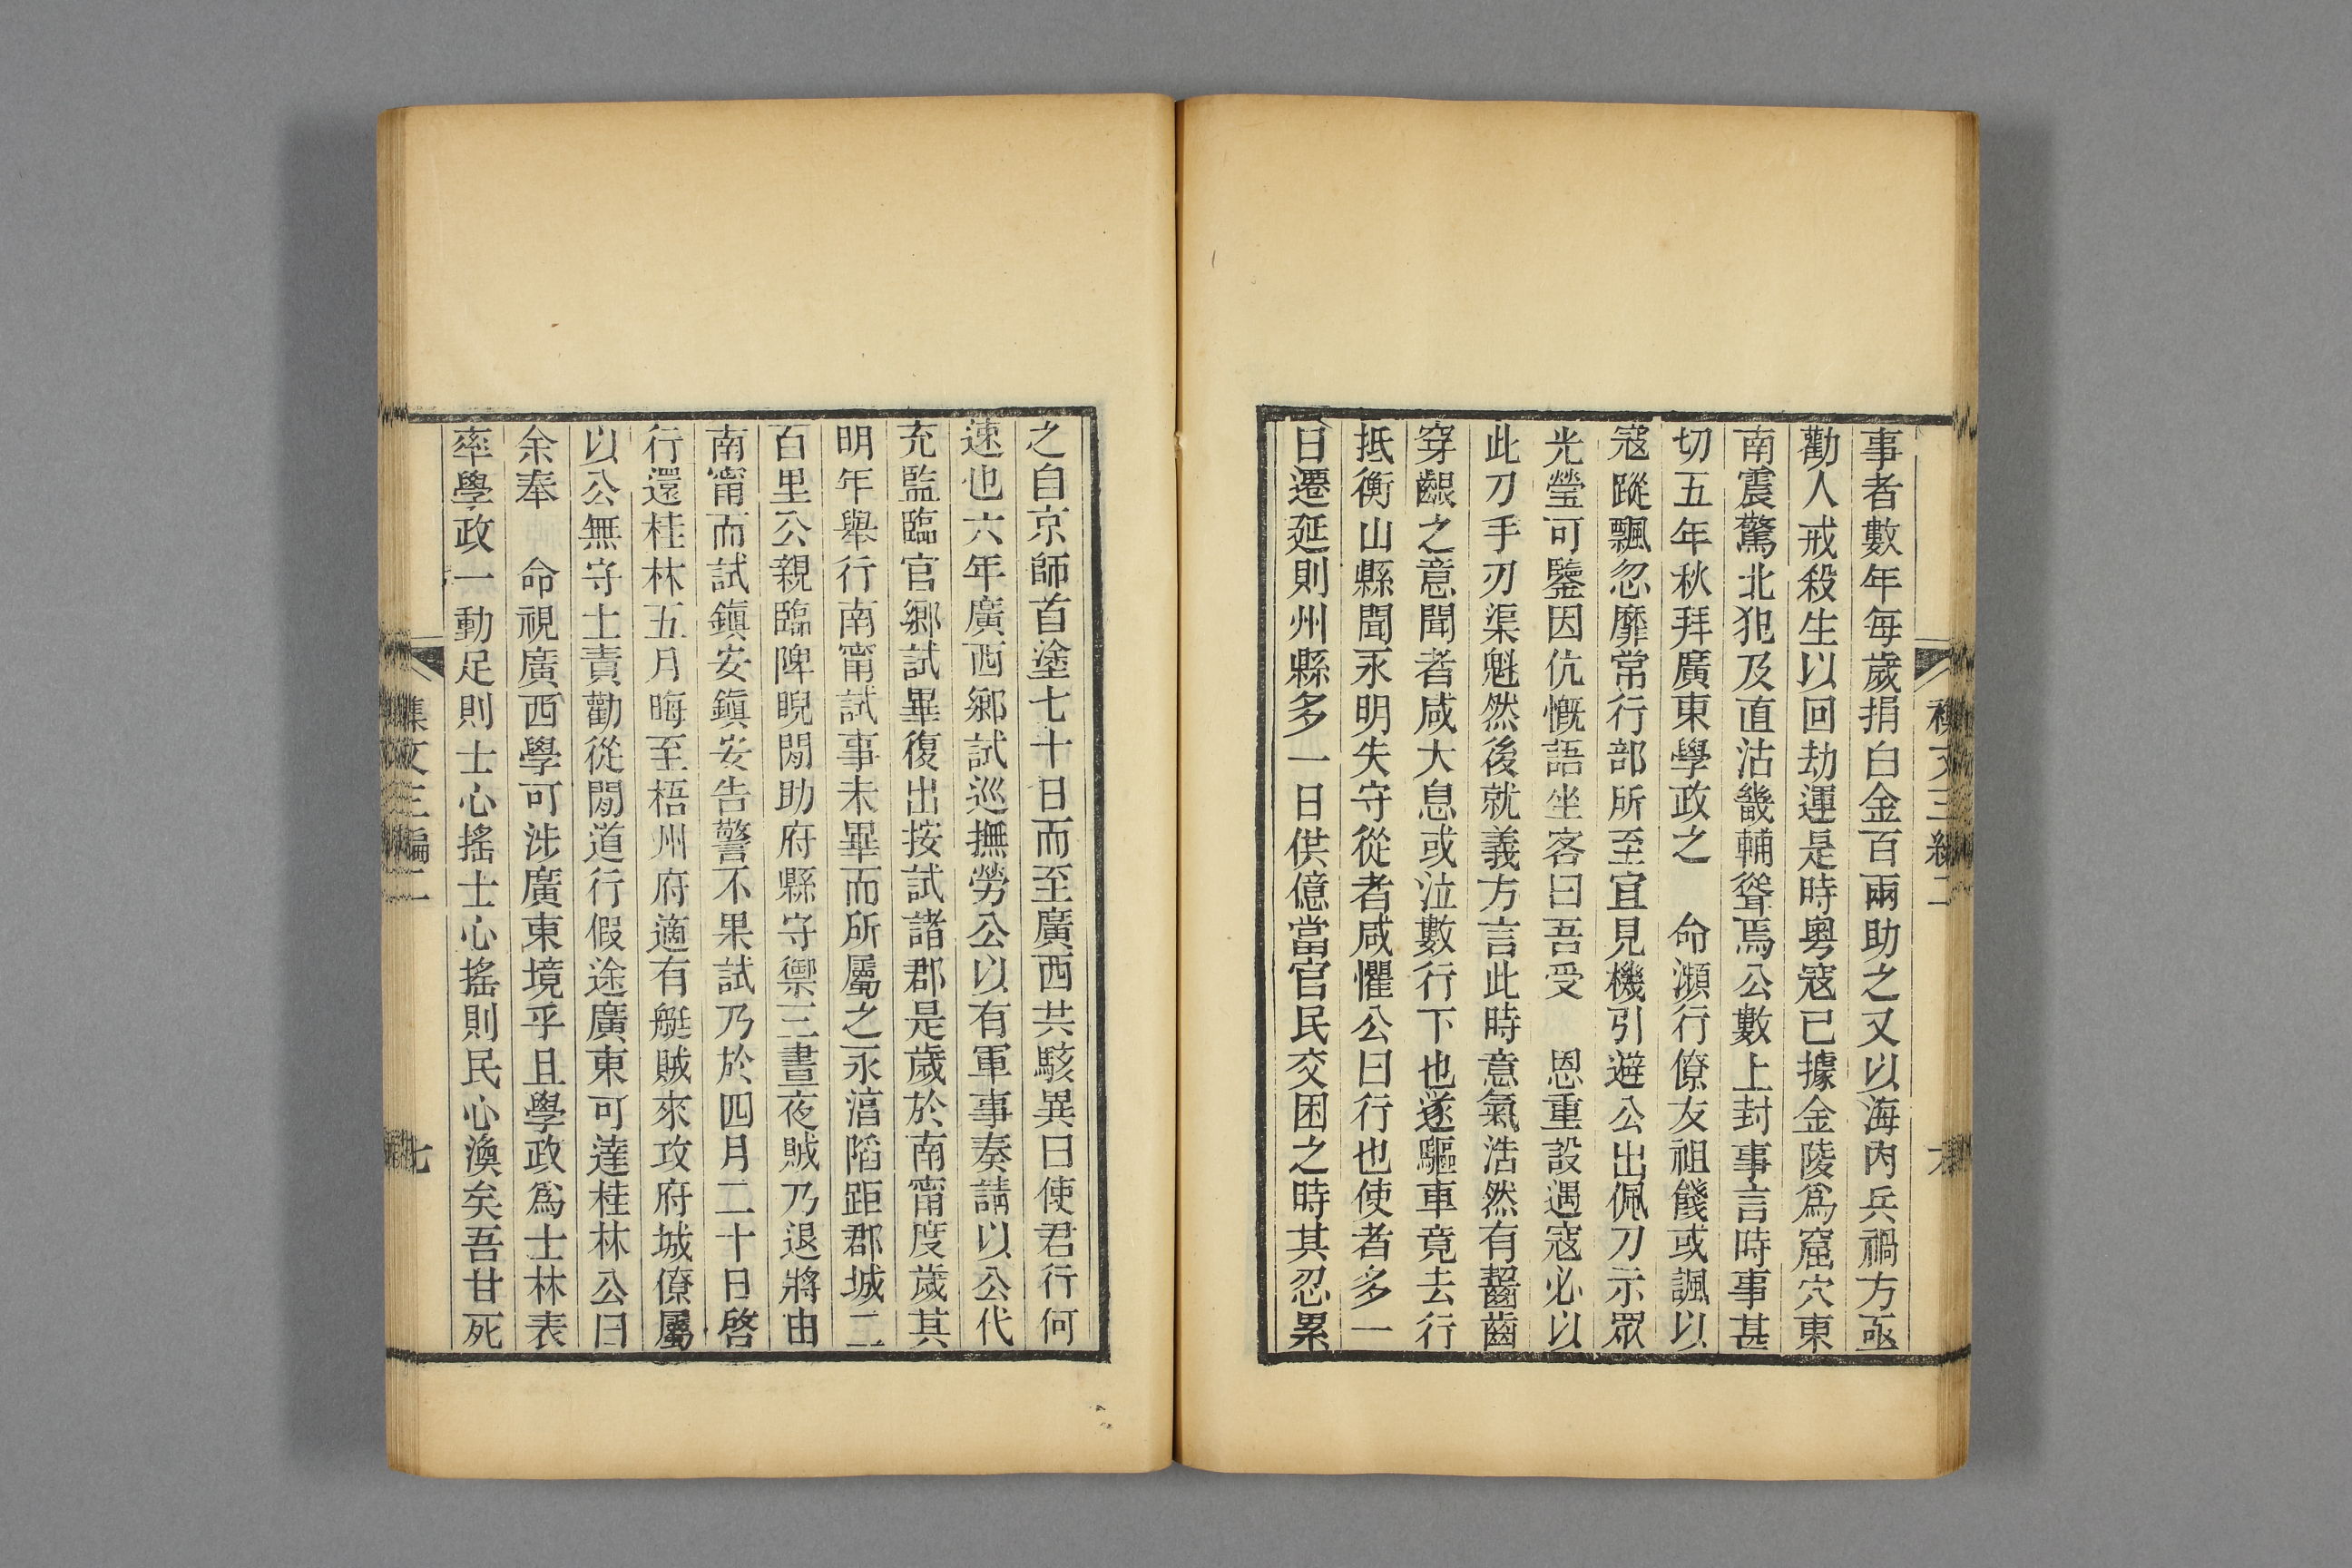 事者數年每歲捐白金百兩助之又以海內兵禍方亟
勸人戒殺生以回劫運是時粵寇已據金陵爲窟穴東
南震驚北犯及直沽畿輔聳焉公數上封事言時事甚
切五年秋拜廣東學政之　命瀕行僚友祖餞或諷以
寇蹤飄忽靡常行部所至宜見機引避公出佩刀示眾
光瑩可鑒因伉慨語坐客曰吾受　恩重設遇寇必以
此刀手刃渠魁然後就義方言此時意氣浩然有齧齒
穿齦之意聞者咸大息或泣數行下也遂驅車竟去行
抵衡山縣聞永明失守從者咸懼公曰行也使者多一
日遷延則州縣多一日供億當官民交困之時其忍累
之自京師首塗七十日而至廣西共駭異曰使君行何
速也六年廣西鄉試巡撫勞公以有軍事奏請以公代
充監臨官鄉試畢復出按試諸郡是歲於南甯度歲其
明年舉行南甯試事未畢而所屬之永淳陷距郡城二
百里公親臨陴睨閒助府縣守禦三晝夜賊乃退將由
南甯而試鎮安鎮安告警不果試乃於四月二十日啓
行還桂林五月晦至梧州府適有艇賊來攻府城僚屬
以公無守土責勸從閒道行假途廣東可達桂林公曰
余奉　命視廣西學可涉廣東境乎且學政爲士林表
率學政一動足則士心搖士心搖則民心渙矣吾甘死
集文三編二
七